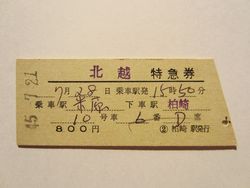 北越 特急券
7月28日 乗車駅発 15時50分
乗車駅 下車駅 柏崎
10号車 6番 D席
800円 ②柏崎駅発行
45.7.21